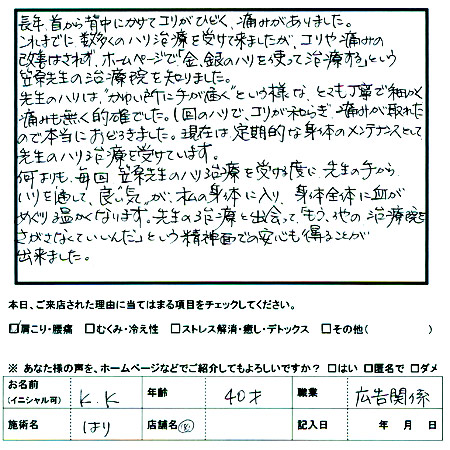 長年首から背中にかけてコリがひどく、痛みがありました。
これまでに数多くのハリ治療を受けて来ましたが、コリや痛みの
改善はされず、ホームページで「金、銀のハリを使って治療する」という
笠原先生の治療院を知りました。
先生のハリは“かゆい所に手が届く”という様な、とても丁寧で細かく
痛みも無く的確でした。1回のハリで、コリが和らぎ、痛みが取れた
ので本当におどろきました。現在は定期的な身体のメンテナンスとして
先生のハリ治療を受けています。
何よりも、毎回笠原先生のハリ治療を受ける度に、先生の手から
ハリを通して、良い“気”が、私の身体に入り、身体全体に血が
めぐり温かくなります。先生の治療と出会って「もう、他の治療院を
さがさなくていいんだ」という精神面での安心も得ることが
出来ました。
本日、ご来店された理由に当てはまる項目をチェックしてください。
☑肩こり・腰痛 □むくみ・冷え性 □ストレス解消・癒し・デトックス □その他( )
※ あなた様の声を、ホームページなどでご紹介してもよろしいですか？ □はい □匿名で □ダメ
お名前 (イニシャル可) K.K 年齢 40才 職業 広告関係
施術名 はり 店舗名 記入日 年 月 日